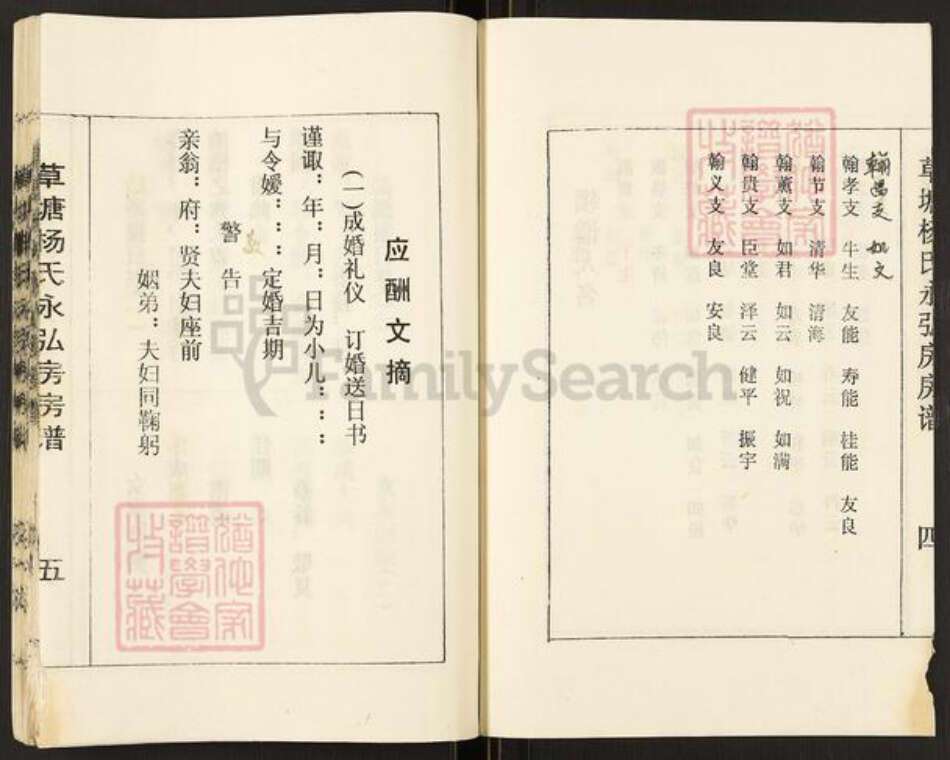 草塘杨氏永弘房房谱
四
翰昌支 如文
翰孝支 牛生 友能 寿能 桂能 友良
翰节支 清华 清海
翰薰支 如君 如云 如祝 如满
翰贵支 臣堂 泽云 健平 振宇
翰义支 友良 安良
应酬文摘
(一)成婚礼仪 订婚送日书
谨诹：年：月：日为小儿：：：
与令嫒：：：定婚吉期
警告
亲翁：府：贤夫妇座前
姻弟：夫妇同鞠躬
草塘杨氏永弘房房谱
五
FamilySearch